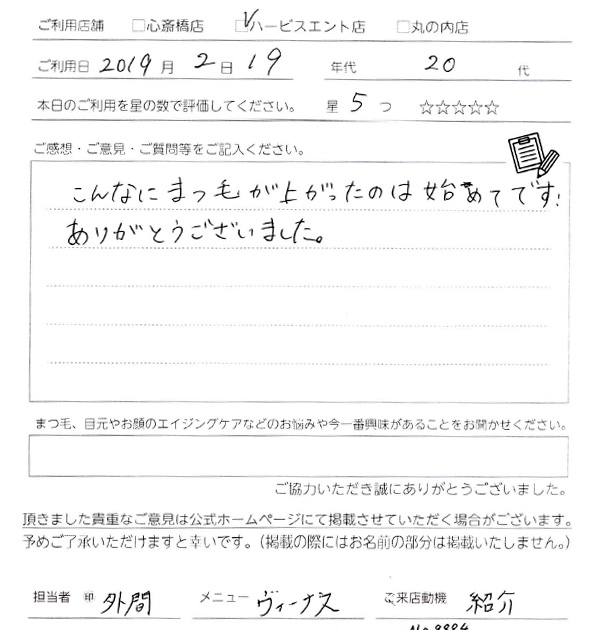 ご利用店舗 □心斎橋店 ☑ハービスエント店 □丸の内店
ご利用日 2019月 2日 19 年代 20 代
本日のご利用を星の数で評価してください。 星 5 つ ☆☆☆☆☆
ご感想・ご意見・ご質問等をご記入ください。
こんなにまつ毛が上がったのは始めてです!
ありがとうございました。
まつ毛、目元やお顔のエイジングケアなどのお悩みや今一番興味があることをお聞かせください。
ご協力いただき誠にありがとうございました。
頂きました貴重なご意見は公式ホームページにて掲載させていただく場合がございます。
予めご了承いただけますと幸いです。(掲載の際にはお名前の部分は掲載いたしません。)
担当者 ㊞ 外間 メニュー ヴィーナス ご来店動機 紹介